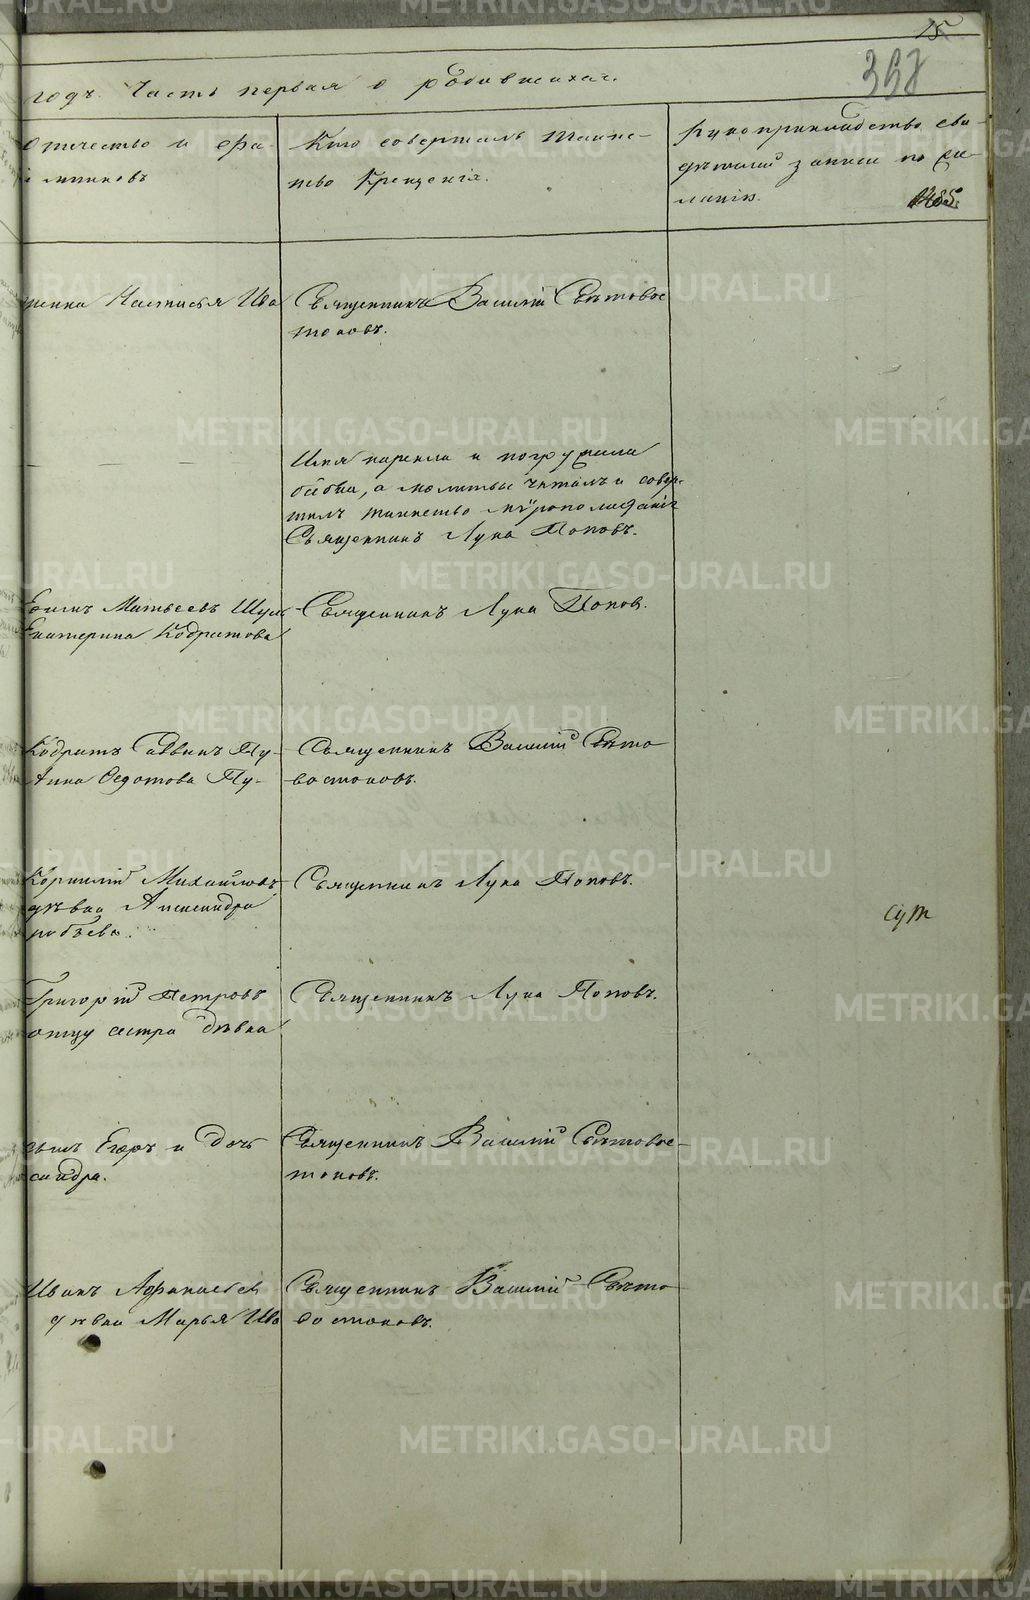 15
годъ. Часть первая о родившихся.
отчество и фа-
Кто совершалъ таинс-
тво Крещенія.
Рукоприкладство сви-
дѣтелей записи по же-
ланію.
Настасья Ива
Священникъ Василій Свѣтовос
токовъ.
Имя нарекла и погружала
бабка, а молитвы читалъ и совер-
шилъ таинство мѵропомазанія
Священникъ Лука Поповъ.
Матвеевъ Шум
Екатерина Кодратова
Священникъ Лука Попов.
Кодратъ Саввинъ Пу-
Анна Федотова Пу-
Священникъ Василий Свѣто
востоковъ.
Корнилій Михайловъ
дѣвка Александра
Священникъ Лука Поповъ.
сут
Григорій Петровъ
отцу сестра дѣвка
Священникъ Лука Поповъ.
сынъ Егоръ и дочь
сандра.
Священникъ Василій Свѣтовос-
токовъ.
Иванъ Афанасьев
дѣвка Марья Ива
Священникъ Василій Свѣто
востоковъ.
METRIKI.GASO-URAL.RU